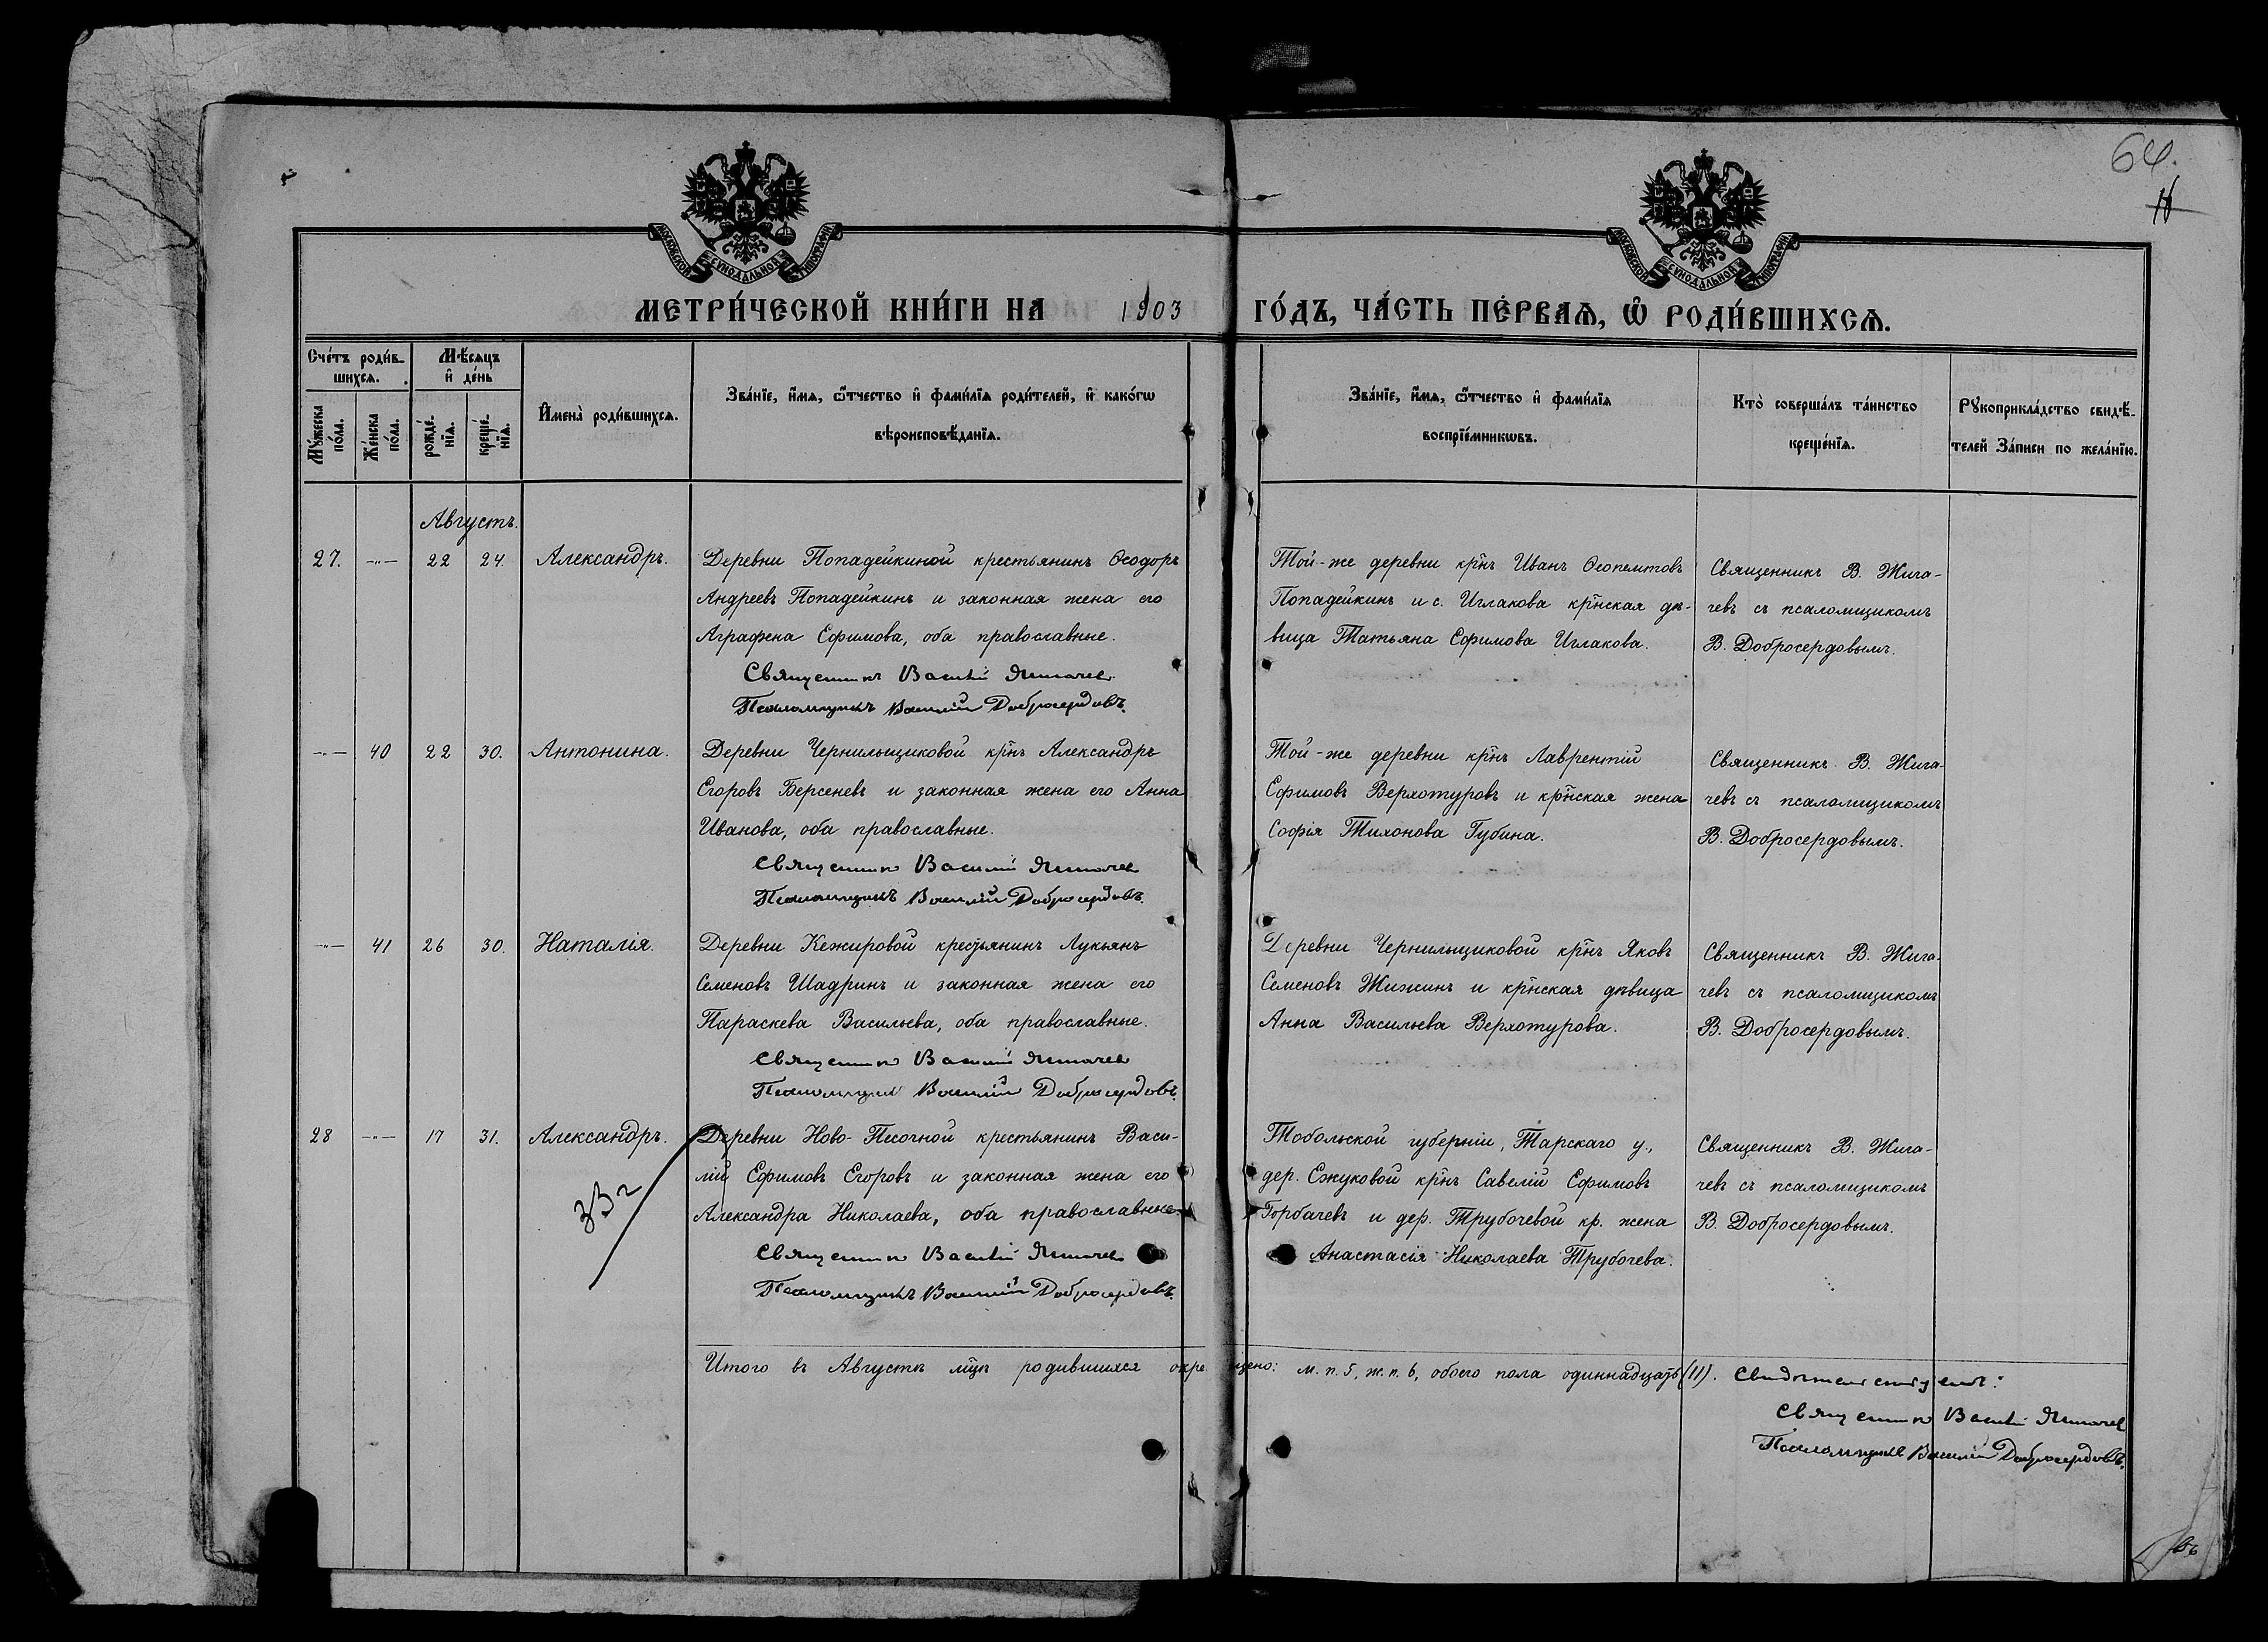 64.
16
МОСКОВСКОЙ СУНОДАЛЬНОЙ ТИПОГРАФІИ
МОСКОВСКОЙ СУНОДАЛЬНОЙ ТИПОГРАФІИ
МЕТРИ́ЧЕСКОЙ КНИ́ГИ НА 1903 ГО́ДЪ, ЧА́СТЬ ПЕ́РВАѦ, Ѡ РОДИ́ВШИХСѦ.
Сче́тъ роди́в-
шихсѧ.
Мꙋ́жеска по́ла.
Же́нска по́ла.
Мѣ́сѧцъ
и҆ де́нь
рожде́-
нїѧ.
креще́-
нїѧ.
И҆мена̀ роди́вшихсѧ.
Зва́нїе, и҆́мѧ, ѻ҆́тчество и҆ фами́лїѧ роди́телей, и҆ како́гѡ
вѣроисповѣ́данїѧ.
Зва́нїе, и҆́мѧ, ѻ҆́тчество и҆ фами́лїѧ
воспрїе́мникѡвъ.
Кто̀ соверша́лъ та́инство
креще́нїѧ.
Рꙋкоприкла́дство свидѣ́-
телей За́писи по жела́нїю.
Августъ.
27. -"- 22 24. Александръ.
Деревни Попадейкиной крестьянинъ Ѳеодоръ
Андреевъ Попадейкинъ и законная жена его
Аграфена Ефимова, оба православные.
Священникъ Василій Жигачев
Псаломщикъ Василій Добросердовъ.
Той-же деревни крн̃ъ Иванъ Ѳеопемтовъ
Попадейкинъ и с. Иглакова крн̃ская дѣ-
вица Татьяна Ефимова Иглакова.
Священникъ В. Жига-
чевъ съ псаломщикомъ
В. Добросердовымъ.
-"- 40 22 30. Антонина.
Деревни Чернильщиковой крн̃ъ Александръ
Егоровъ Берсеневъ и законная жена его Анна
Иванова, оба православные.
Священник Василій Жигачев
Псаломщикъ Василій Добросердовъ.
Той-же деревни крн̃ъ Лаврентій
Ефимовъ Верхотуровъ и крн̃ская жена
Софія Тихонова Губина.
Священникъ В. Жига-
чевъ съ псаломщикомъ
В. Добросердовымъ.
-"- 41 26 30. Наталія.
Деревни Кежировой крестьянинъ Лукьянъ
Семеновъ Шадринъ и законная жена его
Параскева Васильева, оба православные.
Священник Василій Жигачев
Псаломщик Василій Добросердовъ.
Деревни Чернильщиковой крн̃ъ Яковъ
Семеновъ Жижинъ и крн̃ская дѣвица
Анна Васильева Верхотурова.
Священникъ В. Жига-
чевъ съ псаломщикомъ
В. Добросердовымъ.
28 -"- 17 31. Александръ.
Деревни Ново-Песочной крестьянинъ Васи-
лій Ефимовъ Егоровъ и законная жена его
Александра Николаева, оба православные.
Священник Василій Жигачев
Псаломщикъ Василій Добросердовъ.
Тобольской губерніи, Тарскаго у.,
дер. Сжуковой крн̃ъ Савелій Ефимовъ
Горбачевъ и дер. Трубочевой кр. жена
Анастасія Николаева Трубочева.
Священникъ В. Жига-
чевъ съ псаломщикомъ
В. Добросердовымъ.
Итого въ Августѣ мц̃ѣ родившихся окрещено: м.п. 5, ж.п. 6, обоего пола одиннадцать (11). Свидѣтельствуемъ:
Священник Василій Жигачев
Псаломщикъ Василій Добросердовъ.